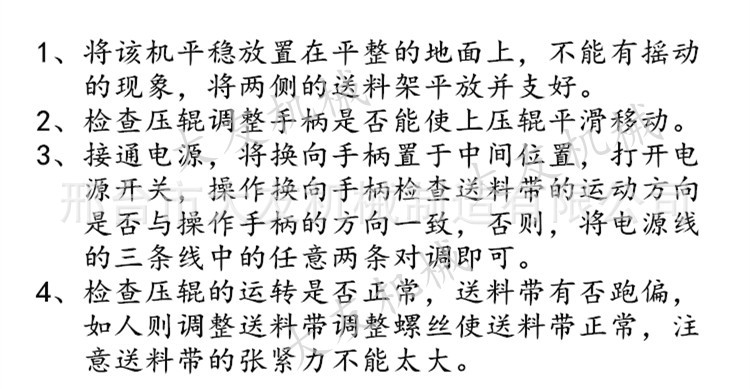 1、将该机平稳放置在平整的地面上，不能有摇动
的现象，将两侧的送料架平放并支好。
2、检查压辊调整手柄是否能使上压辊平滑移动。
3、接通电源，将换向手柄置于中间位置，打开电
源开关，操作换向手柄检查送料带的运动方向
是否与操作手柄的方向一致，否则，将电源线
的三条线中的任意两条对调即可。
4、检查压辊的运转是否正常，送料带有否跑偏，
如人则调整送料带调整螺丝使送料带正常，注
意送料带的张紧力不能太大。
大友机械
大友机械
邢台市大友机械制造有限公司
大友机械